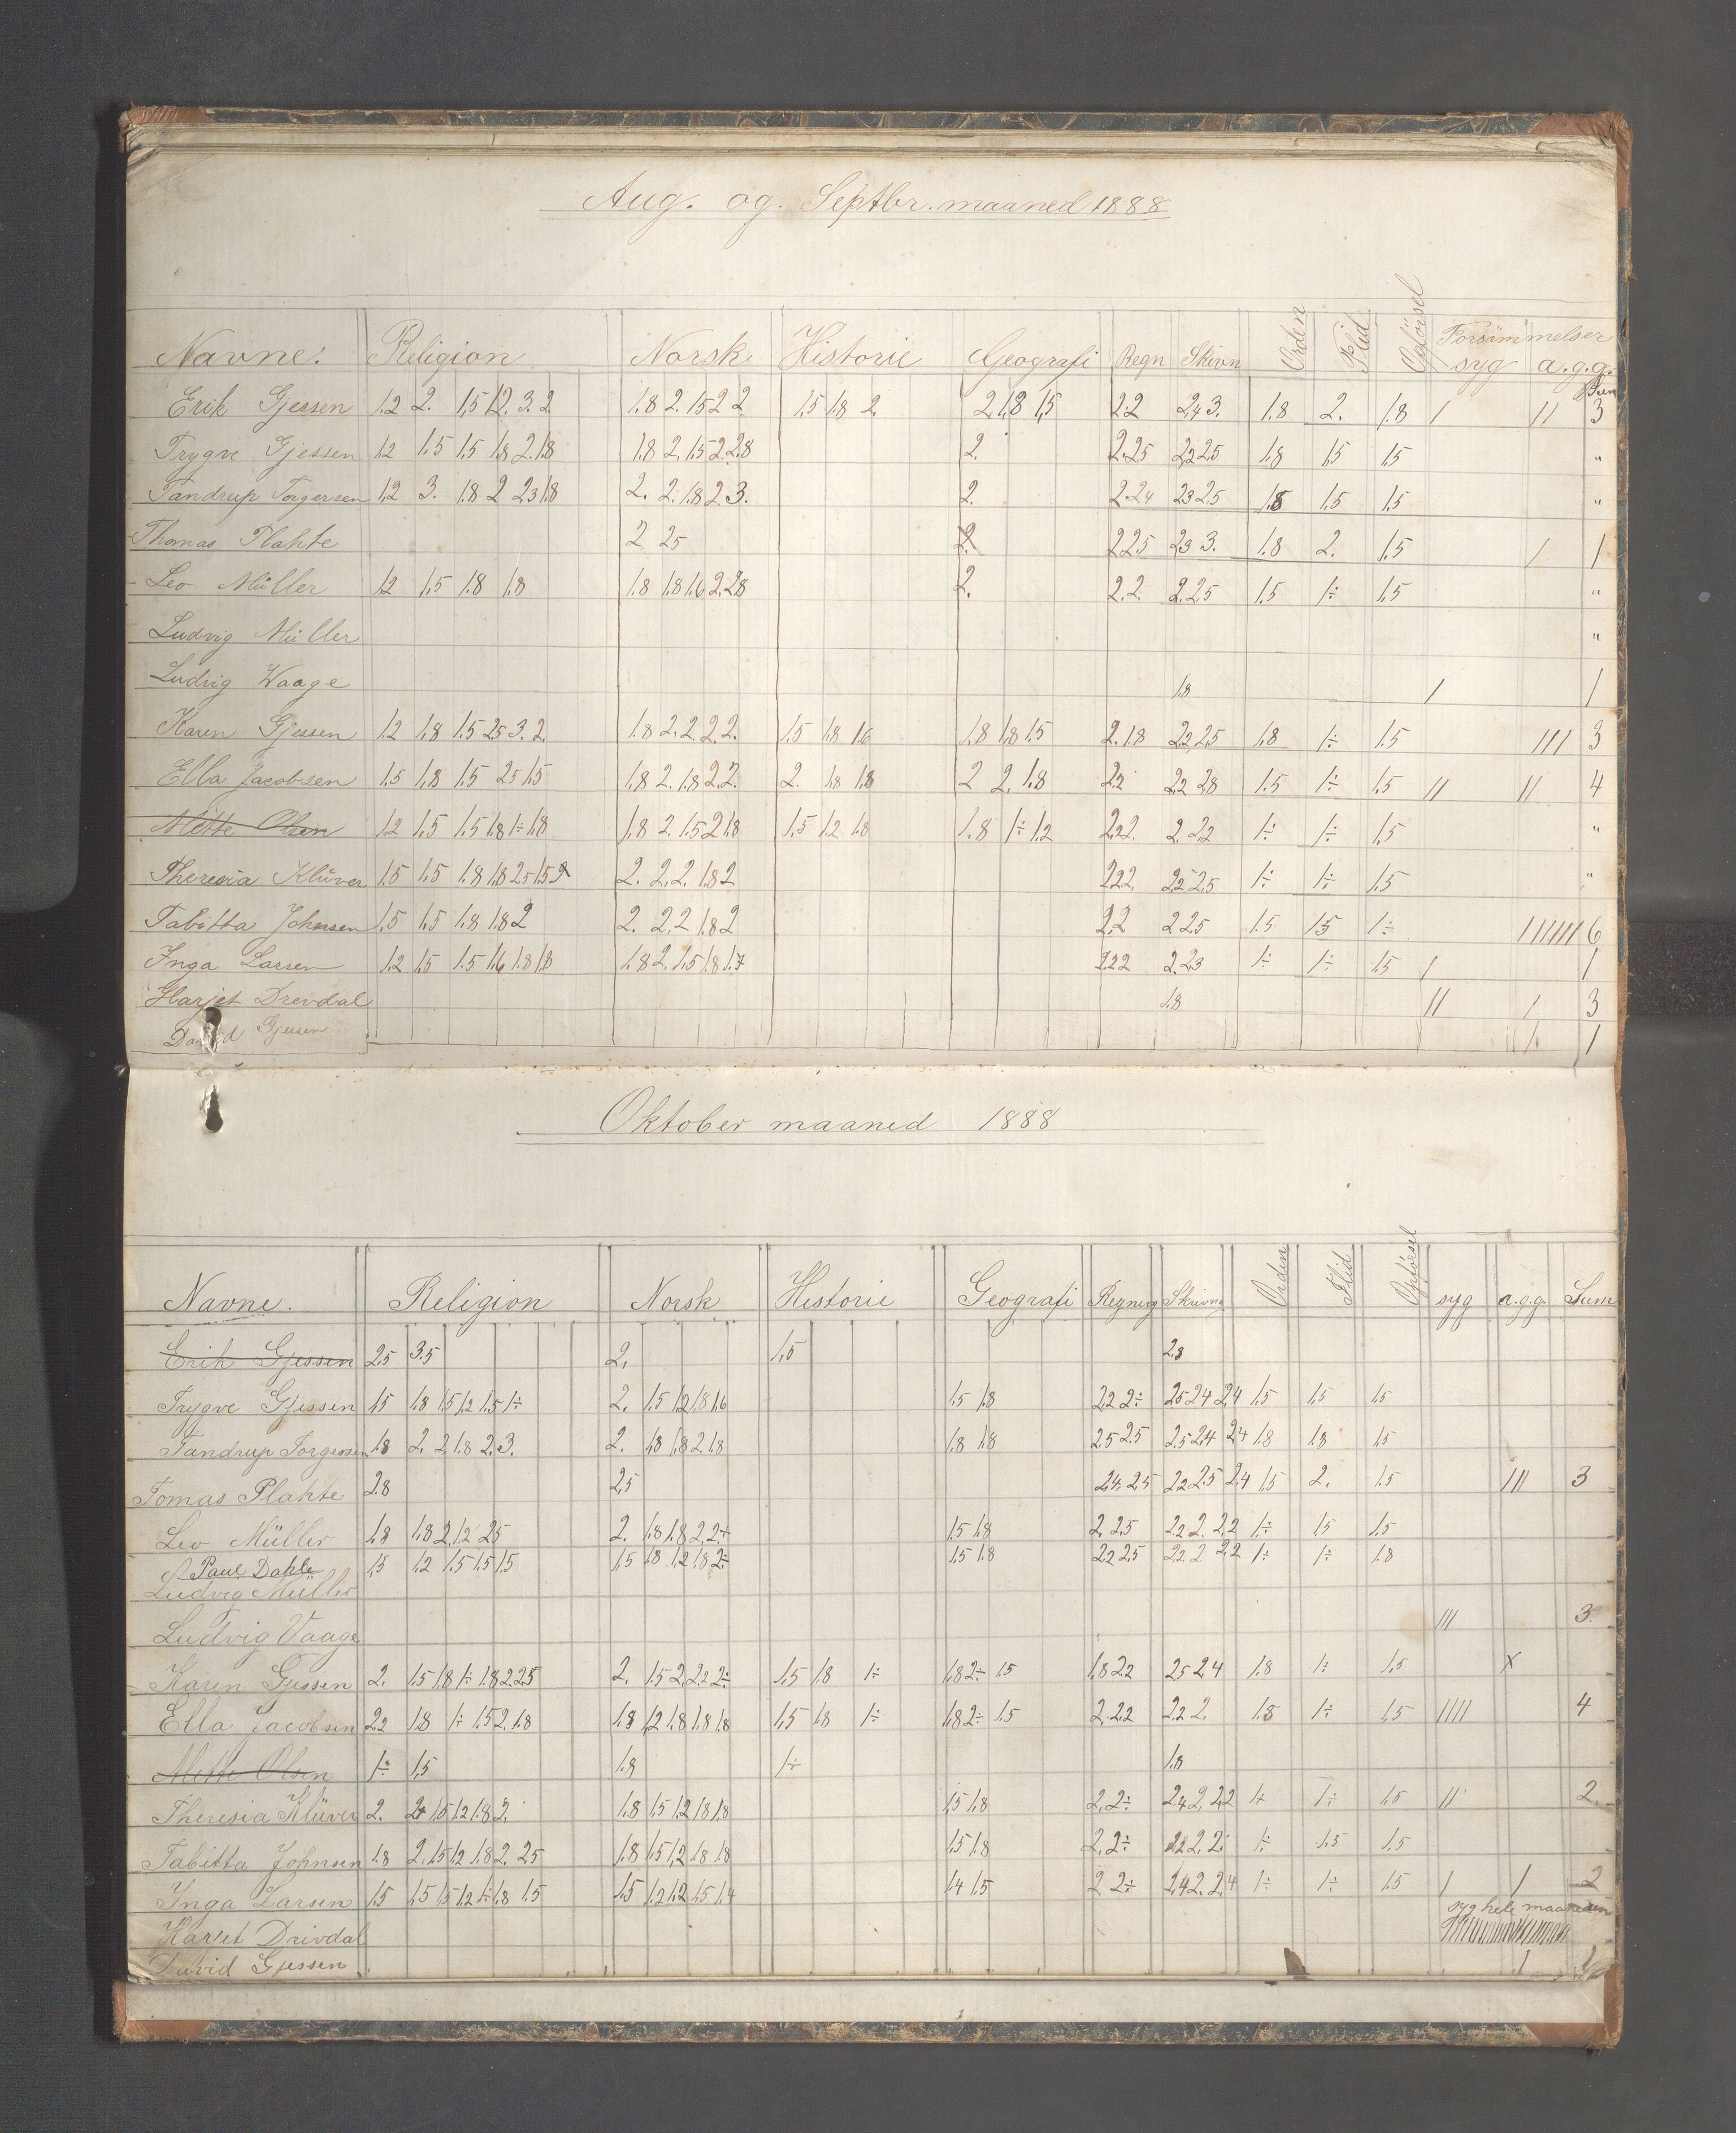 Aug. og. Septbr. maaned 1888
Navne. Religion Norsk Historie Geografi Regn Skrivn Orden Flid Opförsel Forsömmelser syg a.g.g. Sum
Erik Gjessen 1,2 2. 1,5 1,2. 3. 2 1,8 2. 1,5 2 2 1,5 1,8 2. 2 1,8 1,5 2.2 2,4 3. 1,8 2. 1,8 / // 3
Trygve Gjessen 1,2 1,5 1,5 1,8 2. 1,8 1,8 2. 1,5 2. 2,8 2. 2. 2,5 2,2 2,5 1,8 1,5 1,5 "
Tandrup Torgersen 1,2 3. 1,8 2 2,3 1,8 2. 2. 1,8 2. 3. 2. 2. 2,4 2,3 2,5 1,8 1,5 1,5 "
Thomas Plahte 2 2,5 2. 2 2,5 2,3 3. 1,8 2. 1,5 / 1
Leo Müller 1,2 1,5 1,8 1,8 1,8 1,8 1,6 2. 2,8 2. 2.2. 2. 2,5 1,5 1÷ 1,5 "
Ludvig Müller "
Ludvig Waage 1,8 / 1
Karen Gjessen 1,2 1,8 1,5 2,5 3. 2. 1,8 2. 2. 2. 2. 1,5 1,8 1,6 1,8 1,8 1,5 2. 1,8 2,2 2,5 1,8 1÷ 1,5 /// 3
Ella Jacobsen 1,5 1,8 1,5 2,5 1,5 1,8 2. 1,8 2. 2. 2. 1,8 1,8 2 2. 1,8 2.2 2,2 2,8 1,5 1÷ 1,5 // // 4
Mette Olsen 1,2 1,5 1,5 1,8 1÷ 1,8 1,8 2. 1,5 2 1,8 1,5 1,2 1,8 1,8 1÷ 1,2 2,2 2. 2. 2,2 1÷ 1÷ 1,5 "
Theresia Klüver 1,5 1,5 1,8 1,8 2,5 1,5 2. 2. 2. 1,8 2 2,2 2. 2,2 2,5 1÷ 1÷ 1,5 "
Tabitta Johnsen 1,5 1,5 1,8 1,8 2 2. 2. 2 1,8 2 2.2 2 2,5 1,5 1,5 1÷ ////// 6
Inga Larsen 1,2 1,5 1,5 1,6 1,8 1,8 1,8 2. 1,5 1,8 1,7 2,2 2 2. 2,3 1÷ 1÷ 1,5 / 1
Harjet Drevdal 1,8 // / 3
David Gjessen / 1
Oktober maaned 1888
Navne. Religion Norsk Historie Geografi Regning Skrivng Orden Flid Opförsel syg a.g.g. Sum
Erik Gjessen 2,5 3,5 2. 1,5 2,8
Trygve Gjessen 1,5 1,8 1,5 1,2 1,5 1÷ 2. 1,5 1,2 1,8 1,6 1,5 1,8 2,2 2÷ 2,5 2,4 2,4 1,5 1,5 1,5
Tandrup Torgessen 1,8 2. 2 1,8 2. 3. 2. 1,8 1,8 2. 1,8 1,8 1,8 2,5 2,5 2,5 2,4 2,4 1,8 1,8 1,5
Tomas Plahte 2,8 2,5 2,4. 2,5 2,2 2,5 2,4 1,5 2. 1,5 /// 3
Leo Müller 1,8 1,8 2. 1,2 2,5 2. 1,8 1,8 2. 2÷ 1,5 1,8 2. 2,5 2,2 2. 2,2 1÷ 1,5 1,5
Paul Dahle 1,5 1,2 1,5 1,5 1,5 1,5 1,8 1,2 1,8 2÷ 1,5 1,8 2,2 2,5 2,2 2 2,2 1÷ 1÷ 1,8
Ludvig Müller
Ludvig Vaage /// 3.
Karen Gjessen 2. 1,5 1,8 1÷ 1,8 2. 2,5 2. 1,5 2. 2,2 2÷ 1,5 1,8 1÷ 1,8 2÷ 1,5 1,8 2,2 2,5 2,4 1,8 1÷ 1,5 x
Ella Jacobsen 2,2 1,8 1÷ 1,5 2. 1,8 1,8 1,2 1,8 1,8 1,8 1,5 1,8 1÷ 1,8 2÷ 1,5 2. 2,2 2,2 2. 1,8 1÷ 1,5 //// 4
Mette Olsen 1÷ 1,5 1,8 1÷ 1,8
Theresia Klüver 2. 2÷ 1,5 1,2 1,8 2. 1,8 1,5 1,2 1,8 1,8 1,5 1,8 2. 2÷ 2,4 2. 2,2 1÷ 1÷ 1,5 // 2.
Tabitta Johnsen 1,8 2. 1,5 1,2 1,8 2. 2,5 1,8 1,5 1,2 1,8 1,8 1,5 1,8 2. 2÷ 2,2 2. 2. 1÷ 1,5 1,5
Inga Larsen 1,5 1,5 1,5 1,2 1÷ 1,8 1,5 1,5 1,2 1,2 1,5 1,4 1,4 1,5 2 2÷ 2,4 2. 2,4 1÷ 1÷ 1,5 / / 2
syg hele maaneden
Harjet Drivdal
David Gjessen /